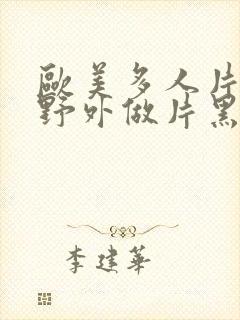 歐美多人片
野外做片黑
李建華